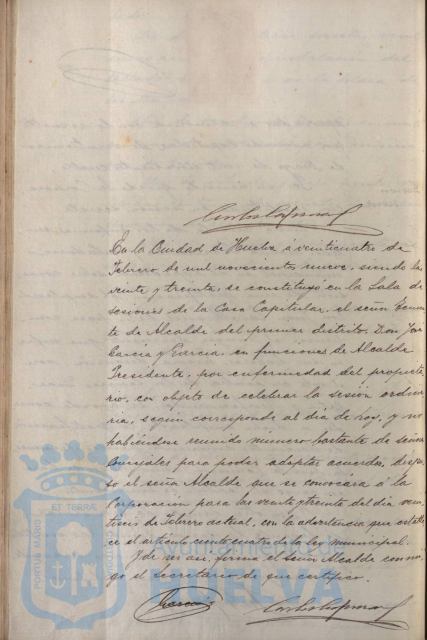 En la Ciudad de Huelva á veinticuatro de
Febrero de mil novecientos nueve, siendo las
veinte y treinta, se constituyó en la Sala de
sesiones de la Casa Capitular, el señor Tenien
te de Alcalde del primer distrito, Don José
García y García, en funciones de Alcalde
Presidente, por enfermedad del propieta
rio, con objeto de celebrar la sesión ordina
ria, según corresponde al día de hoy, y no
habiéndose reunido número bastante de señores
Concejales para poder adoptar acuerdos, dispu
so el señor Alcalde que se convocara á la
Corporación para las veinte y treinta del día vein
tiseis de Febrero actual, con la advertencia que estable
ce el artículo ciento cuatro de la ley municipal.
Y de ser así, firma el señor Alcalde conmi
go el Secretario de que certifico.
García
PORTUS MARIS
ET TERRAE
CUSTODIA
Ayuntamiento de
HUELVA